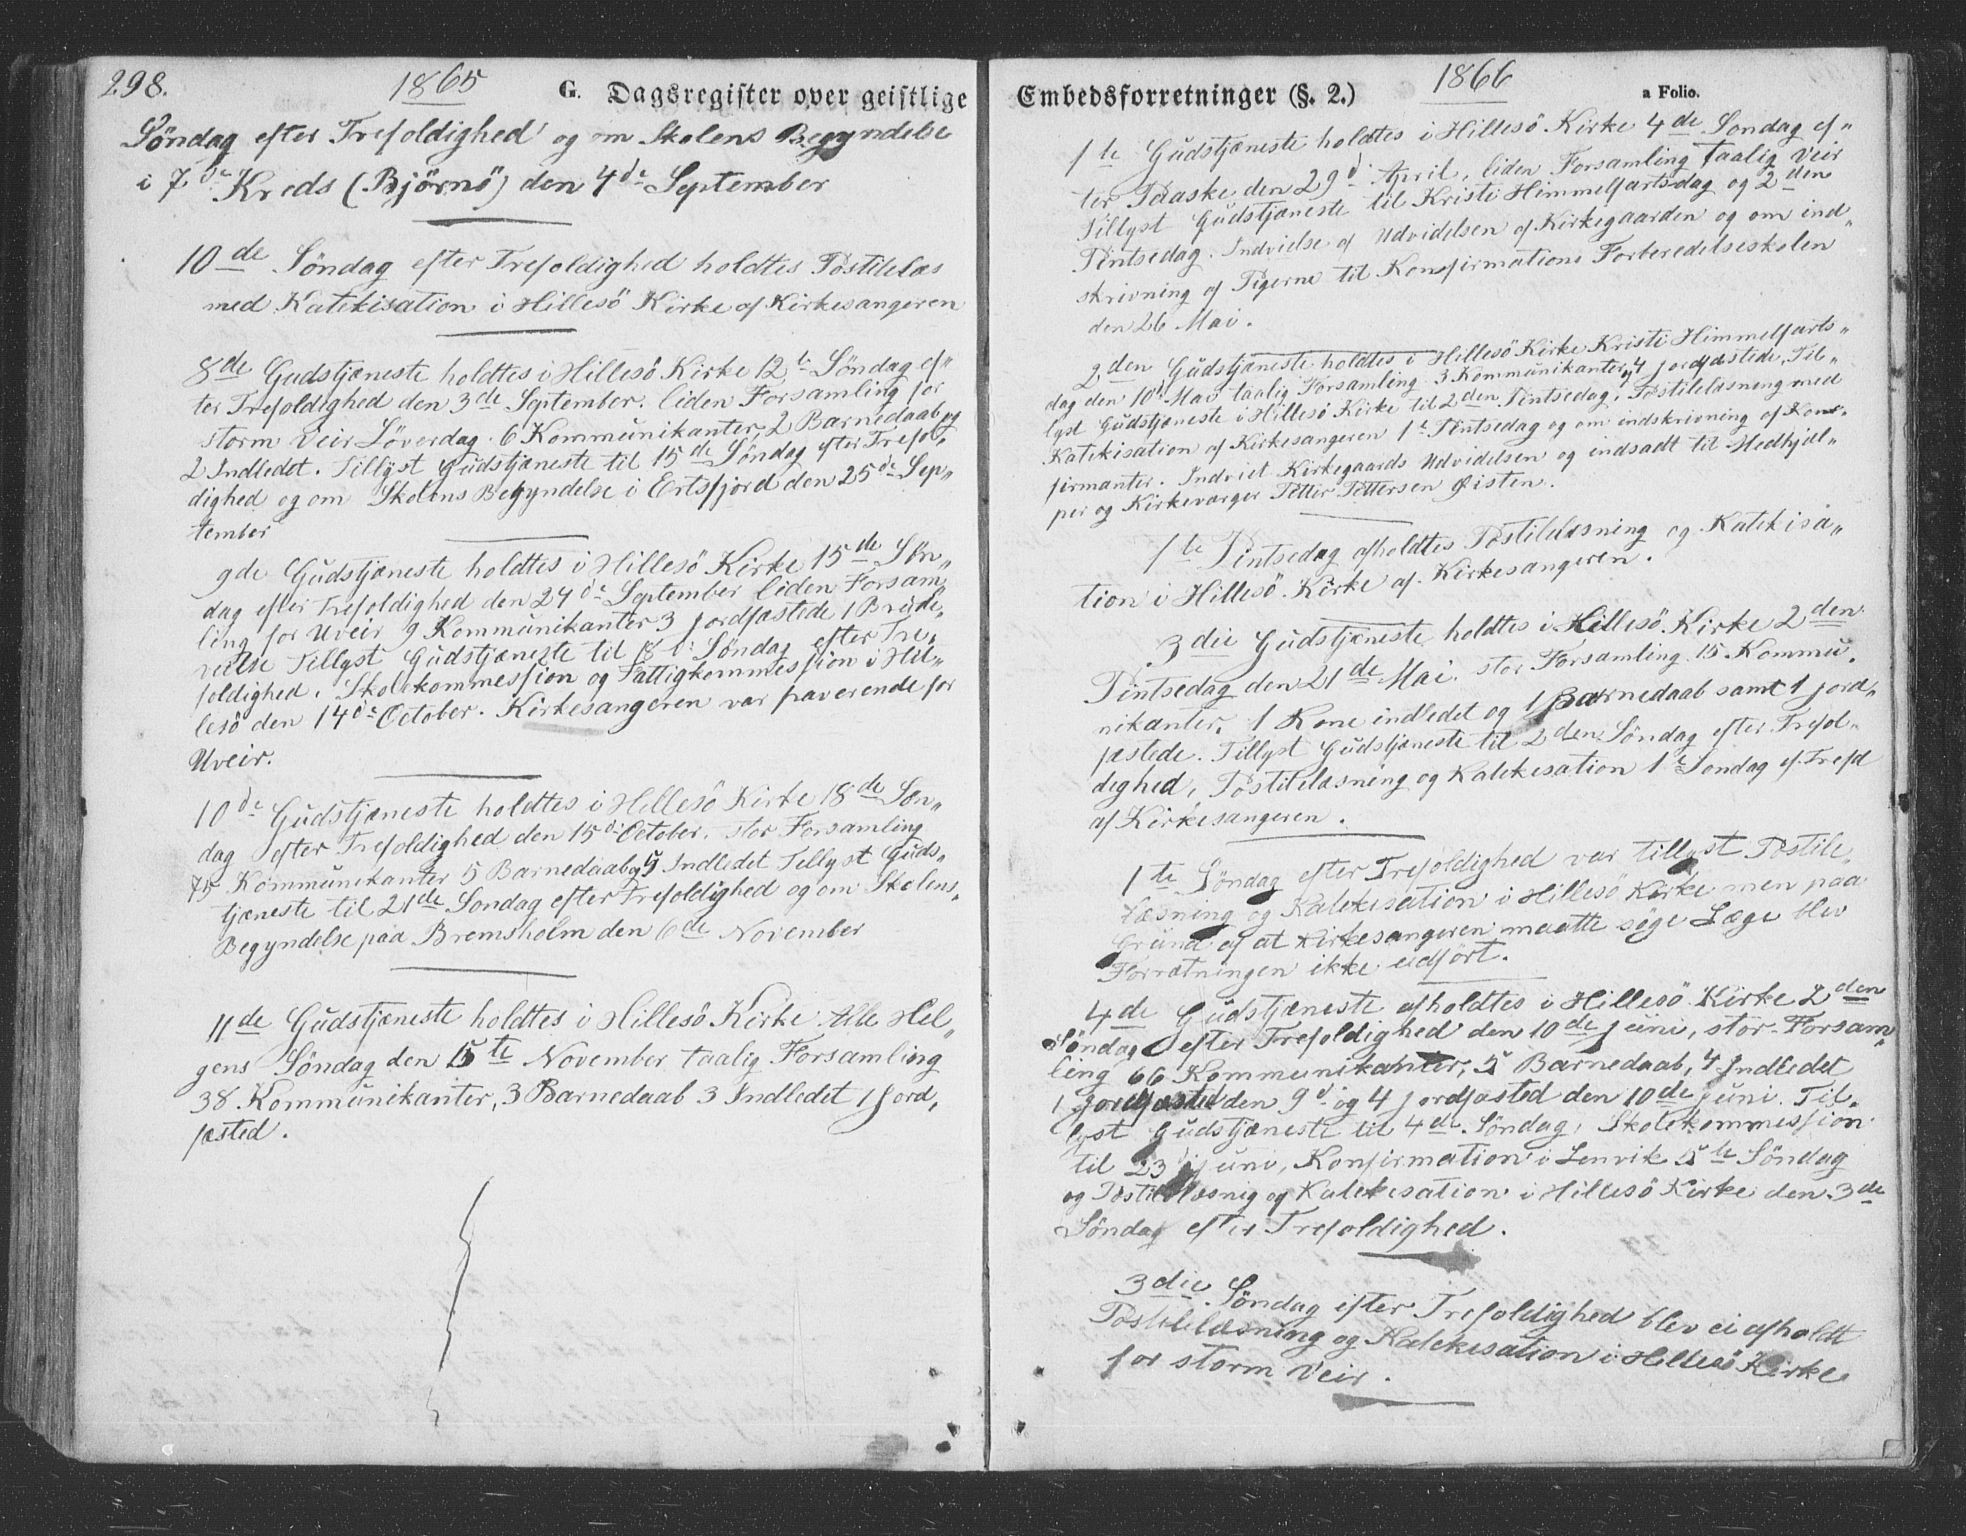 298.
1865
G. Dagsregister over geistlige
Søndag efter Trefoldighed og om Skolens Begyndelse
i 7de Kreds (Bjørnö) den 4de September
10de Söndag efter Trefoldighed holdtes Postilelæs
med Katekisation i Hillesö Kirke af Kirkesangeren
8de Gudstjæneste holdtes i Hillesö Kirke 12te Söndag ef„
ter Trefoldighed den 3de September. liden Forsamling for
storm Veir Löverdag. 6 Kommunikanter, 2 Barnedaab og
2 Indledet. Tillyst Gudstjæneste til 15de Söndag efter Trefol„
dighed og om Skolens Begyndelse i Ertsfjord den 25de Sep„
tember
9de Gudstjæneste holdtes i Hillesö Kirke 15de Søn„
dag efter Trefoldighed den 24de September liden Forsam„
ling for Uveir 9 Kommunikanter 3 jordfæstede 1 Brude„
vielse Tillyst Gudstjæneste til 18de Söndag efter Tre„
foldighed. Skolekommession og Fattigkommession i Hil„
lesö den 14de October. Kirkesangeren var fraverende for
Uveir.
10de Gudstjæneste holdtes i Hillesö Kirke 18de Søn„
dag efter Trefoldighed den 15de October. stor Forsamling
75 Kommunikanter 5 Barnedaab og 5 Indledet Tillyst Guds„
tjæneste til 21de Søndag efter Trefoldighed og om Skolens„
Begyndelse paa Bremsholm den 6de November
11de Gudstjæneste holdtes i Hillesö Kirke Alle Hel„
gens Söndag den 5te November taalig Forsamling
38 Kommunikanter, 3 Barnedaab 3 Indledet 1 jord„
fæsted.
Embedsforretninger (§. 2.)
1866
a Folio.
1te Gudstjæneste holdtes i Hillesö Kirke 4de Søndag ef„
ter Paaske den 29d April, liden Forsamling taalig Veir
Tillyst Gudstjæneste til Kristi Himmelfartsdag og 2den
Pintsedag. Indvielse af Udvidelsen af Kirkegaarden og om ind„
skrivning af Pigerne til Konfirmations Forberedelseskolen
den 26 Mai.
2den Gudstjæneste holdtes i Hillesö Kirke Kristi Himmelfarts„
dag den 10d Mai taalig Forsamling 3 Kommunikanter, 4 jordfæstede, Til„
lyst Gudstjæneste i Hillesö Kirke til 2den Pintsedag. Postilelæsning med
Katekisation af Kirkesangeren 1te Pintsedag og om indskrivning af Kon„
firmanter. Indviet Kirkegaards Udvidelsen og indsadt til Medhjæl„
per og Kirkeværger Petter Pettersen Øisten.
1te Pintsedag afholdtes Postilelæsning og Katekisa„
tion i Hillesö Kirke af Kirkesangeren.
3die Gudstjæneste holdtes i Hillesö Kirke 2den
Pintsedag den 21de Mai. stor Forsamling 15 Kommu„
nikanter. 1 Kone indledet og 1 Barnedaab samt 1 jord„
fæstede. Tillyst Gudstjæneste til 2den Söndag efter Trefol„
dighed, Postilelæsning og Katekesation 1te Søndag ef. Trefd
af Kirkesangeren.
1te Söndag efter Trefoldighed var tillyst Postile„
læsning og Katekesation i Hillesö Kirke men paa
Grund af at Kirkesangeren maatte søge Læge blev
Forrætningen ikke udfört.
4de Gudstjæneste afholdtes i Hillesö Kirke 2den
Söndag efter Trefoldighed den 10de juni, stor Forsam„
ling 66 Kommunikanter, 5 Barnedaab, 4 Indledet
1 jordfæsted den 9d og 4 jordfæsted den 10de juni. Til„
lyst Gudstjæneste til 4de Söndag, Skolekommession
til 23d juni, Konfirmation i Lenvik 5te Söndag
og Postilelæsnig og Katekesation i Hillesö Kirke den 3de
Söndag efter Trefoldighed.
3die Söndag efter Trefoldighed blev ei afholdt
Postilelæsning og Katekesation i Hillesö Kirke
for storm Veir.